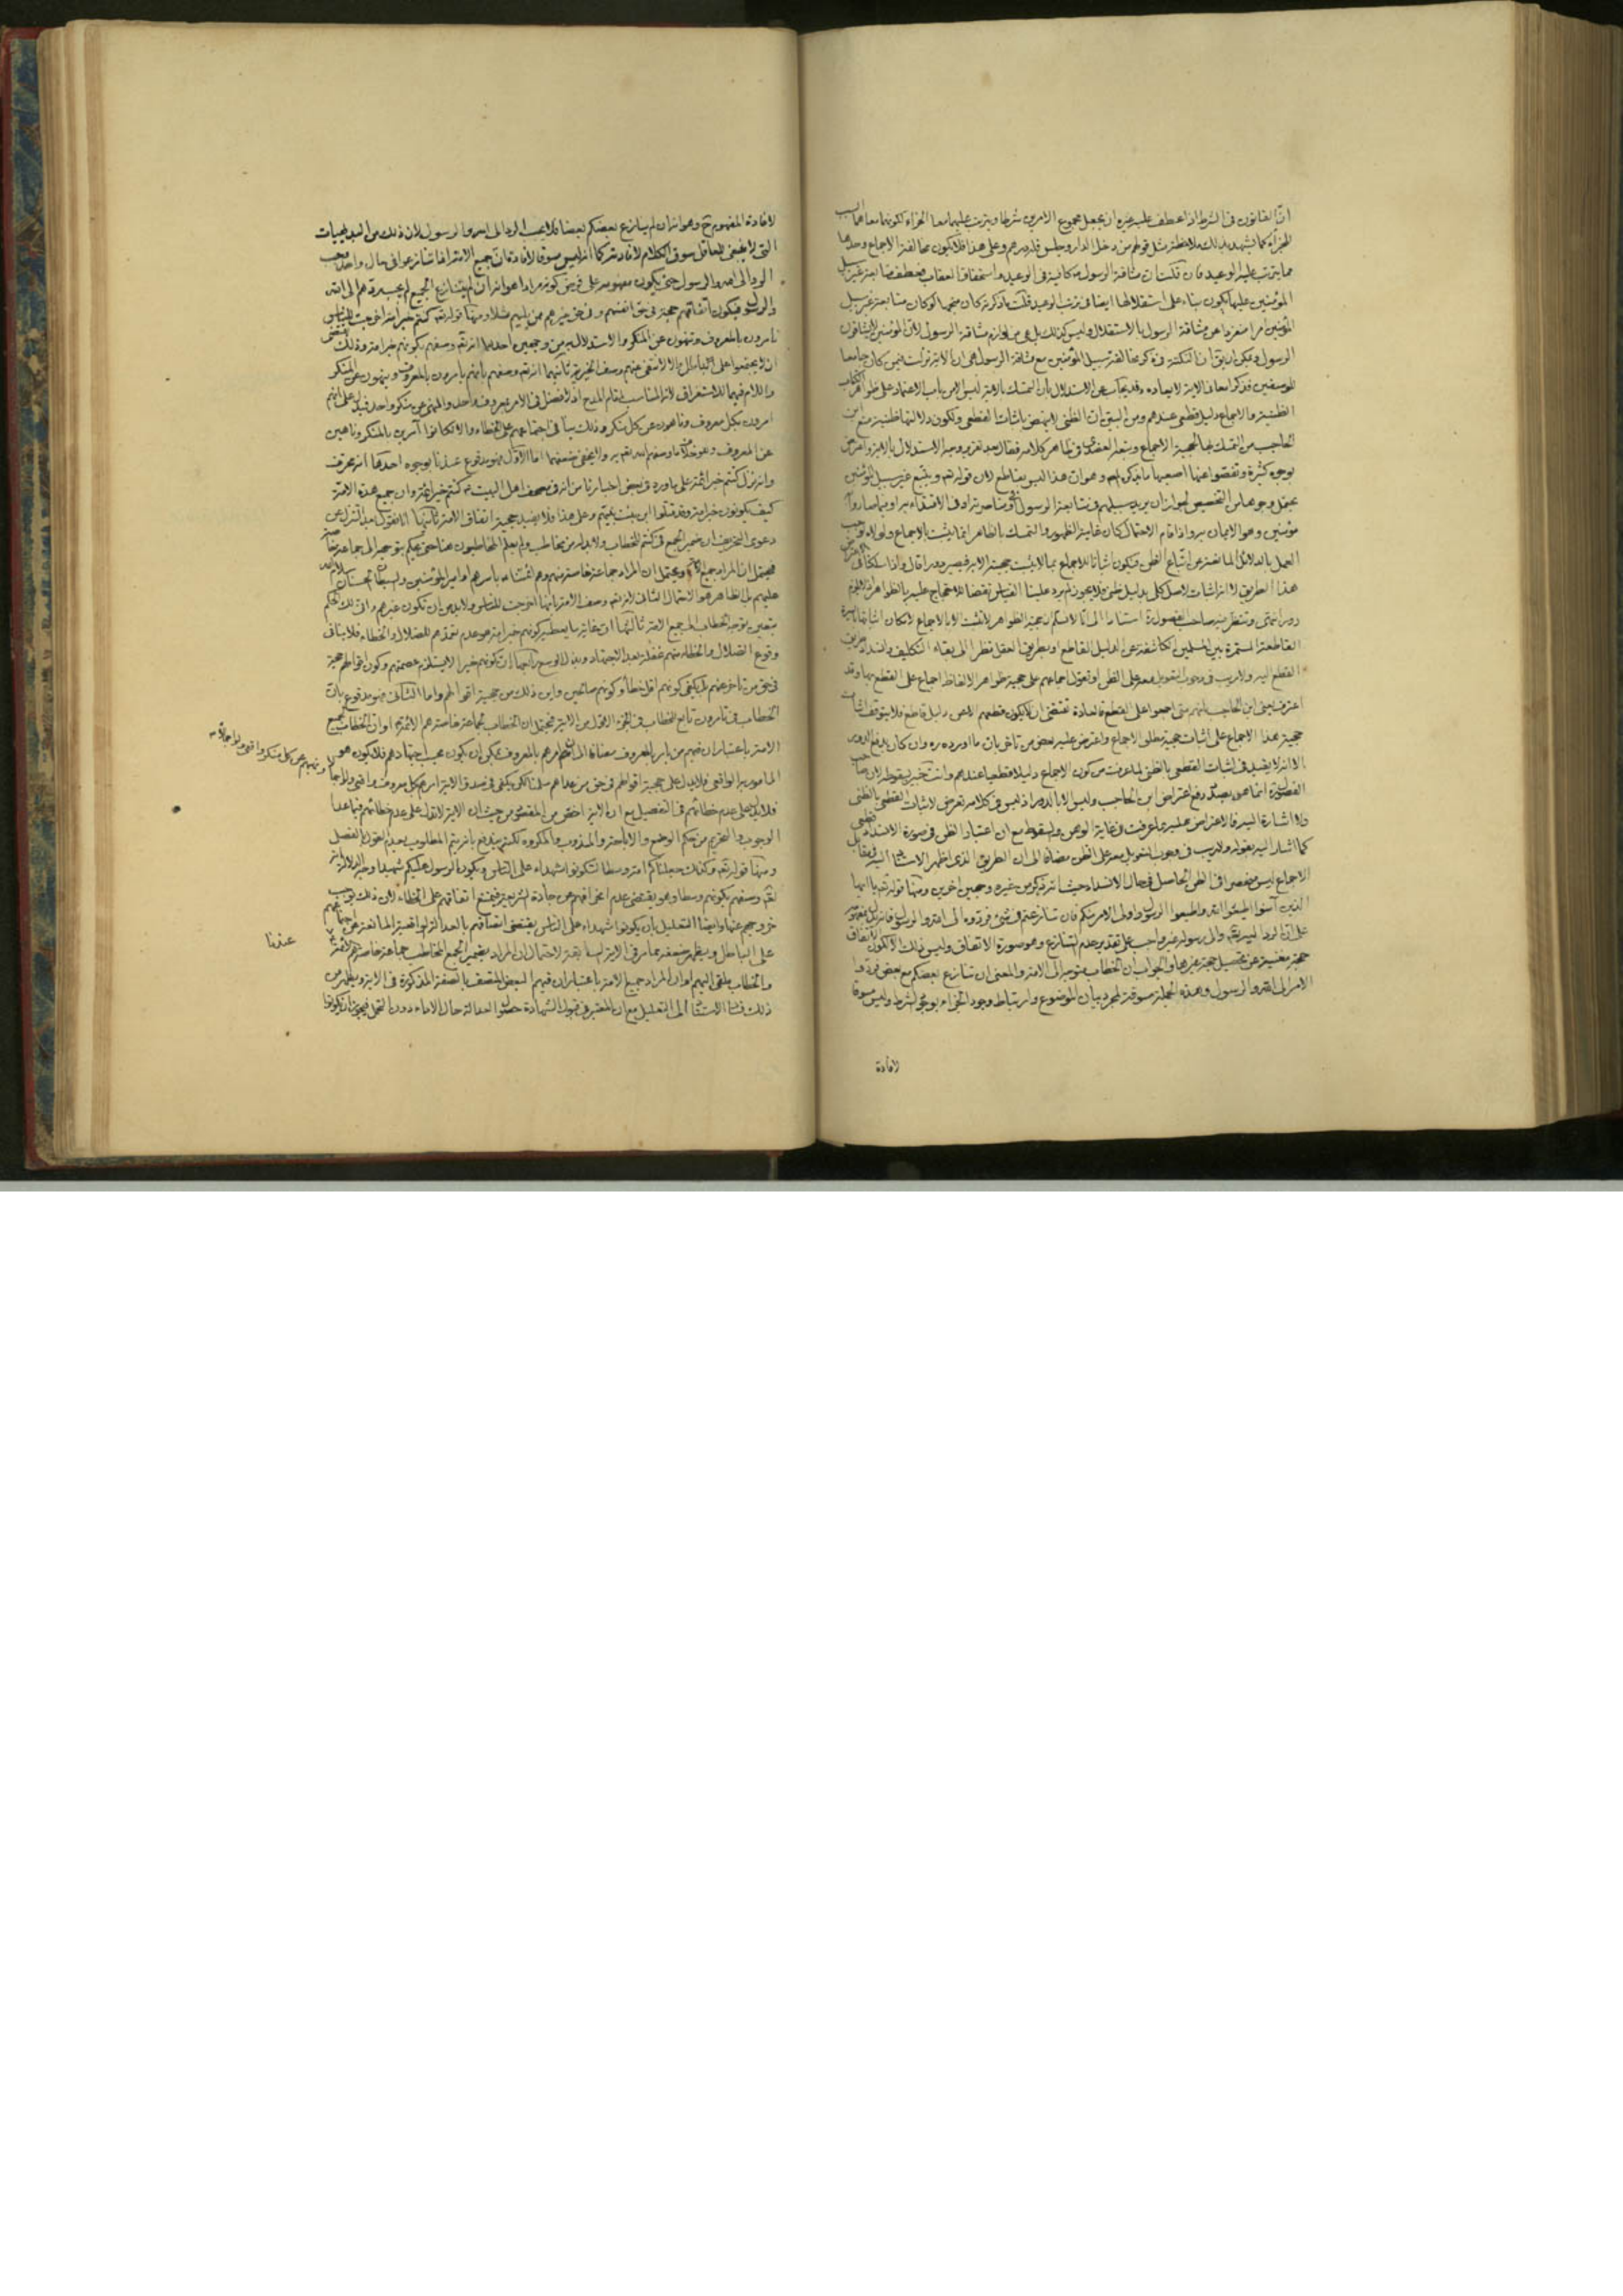 انّ القانون فى الشرط اذا عطف عليه غيره ان يجعل مجموع الامرين شرطا ويترتب عليهما معا الجزاء لكونهما معا
للجزاء كما يشهد بذلك ملاحظة مثل قولهم من دخل الدار وجلس فله درهم وعلى هذا فلا يكون مخالفة الاجماع وحدها
مما يترتب عليه الوعيد فان قلت ان مشاقة الرسول كافية فى الوعيد واستحقاق العقاب متابعة غير سبيل
المؤمنين عليها يكون بناء على استقلالها ايضا فى ترتب الوعيد قلت ما ذكرته كان متجها لو كان متابعة غير سبيل
المؤمنين امرا منفردا عن مشاقة الرسول بالاستقلال وليس كذلك بل هى من لوازم مشاقة الرسول لان المؤمنين لا يشاقون
الرسول ويمكن ان يقال ان النكتة فى ذكر مخالفة سبيل المؤمنين مع مشاقة الرسول هى ان الاية نزلت فيمن كان جامعا
للوصفين فذكرا معا فى الاية وقد يجاب عن الاستدلال بان التمسك بالاية ليس الا من باب الاعتماد على ظواهر الكتاب
الظنية والاجماع دليل قطعى عندهم ومن البين ان الظنى لا ينهض باثبات القطعى ولكون دلالتها ظنية منع ابن
الحاجب من التمسك بها لحجية الاجماع وتبعه العضدى فى ظاهر كلامه فقال بعد تقرير وجه الاستدلال بالاية واعترض
بوجوه كثيرة وتفصوا عنها اصعبها ما يذكره وهو ان هذا ليس بقاطع لان قوله ويتبع غير سبيل المؤمنين
يحتمل وجوها من التخصيص لجواز ان يريد سبيلهم فى متابعة الرسول او مناصرته او فى الاقتداء به او فيما صاروا به
مؤمنين وهو الايمان به واذا قام الاحتمال كان غايته الظهور والتمسك بالظاهر انما يثبت بالاجماع ولولاه لوجب
العمل بالدلائل المانعة من اتباع الظن فيكون اثباتا للاجماع بما لا يثبت حجيته الا به فيصير دورا قال واذا سلكنا فى
هذا الطريق لا اثبات لاصل كلى بدليل ظنى فلا يجوز لم يرد علينا القياس نقضا للاحتجاج عليه بالظواهر اذ لا يلزم
دور انتهى وتنظر فيه صاحب الفصول استنادا الى انا لا نسلم ان حجية الظواهر لا تثبت الا بالاجماع لامكان اثباتها بالسيرة
القاطعة المستمرة بين المسلمين الكاشفة عن الدليل القاطع او بطريق العقل نظرا الى بقاء التكليف وانسداد طريق
القطع اليه ولا ريب فى وجوب التعويل معه على الظن او نعول اجماعهم على حجية ظواهر الالفاظ اجماع على القطع بها وقد
اعترف يعنى ابن الحاجب بانهم متى اجمعوا على القطع فالعادة تقتضى ان لا يكون قطعهم الا عن دليل قاطع فلا يتوقف اثبات
حجية هذا الاجماع على اثبات حجية مطلق الاجماع واعترض عليه بعض من تاخر بان ما اورده وان كان يدفع الدور
الا انه لا يفيد فى اثبات القطعى بالظنى لما عرفت من كون الاجماع دليلا قطعيا عندهم وانت خبير بسقوطه لان صاحب
الفصول انما هو بصدد رفع اعتراض ابن الحاجب وليس الا بالدور اذ ليس فى كلامه تعرض لاثبات القطعى بالظنى
ولا اشارة اليه فالاعتراض عليه بما عرفت فى غاية الوهن والسقوط مع ان اعتبار الظن فى صورة الانسداد قطعى
كما اشار اليه بقوله ولا ريب فى وجوب التعويل معه على الظن مضافا الى ان الطريق الذى اظهر الاستناد اليه فى مقابل
الاجماع ليس منحصرا فى الظن الحاصل فى حال الانسداد حيث انه ذكر من غيره وجهين اخرين ومنها قوله تع يا ايها
الذين آمنوا اطيعوا الله واطيعوا الرسول واولى الامر منكم فان تنازعتم فى شئ فردوه الى الله والرسول فانه يدل بمفهومه
على ان الرد اليه تع والى رسوله غير واجب على تقدير عدم التنازع وهو صورة الاتفاق وليس ذلك الا لكون الاتفاق
حجة مغنية عن تحصيل حجة غيرها والجواب ان الخطاب متوجه الى الامة والمعنى ان تنازع بعضكم مع بعض فردوا
الامر الى الله والرسول وهذه الجملة مسوقة لمجرد بيان الموضوع وارتباط وجود الجزاء بوجود الشرط وليس مسوقا
لافادة
لافادة المفهوم ح وهو انه ان لم ينازع بعضكم بعضا فلا يجب الرد الى الله والرسول لان ذلك من البديهيات
التى لا ينبغى للعاقل سوق الكلام لافادته كما انه ليس مسوقا لافادة ان جميع الامة اذا تنازعوا فى حال واحد يجب
الرد الى الله والرسول حتى يكون مفهومه على فرض كونه مرادا هو انه ان لم يتنازع الجميع لم يجب ردهم الى الله
والرسول فيكون اتفاقهم حجة فى حق انفسهم وفى حق غيرهم ممن يليهم مثلا ومنها قوله تع كنتم خير امة اخرجت للناس
تامرون بالمعروف وتنهون عن المنكر والاستدلال به من وجهين احدهما انه تع وصفهم بكونهم خير امة وذلك يقتضى
ان لا يجتمعوا على الباطل والا لانتفى عنهم وصف الخيرية ثانيهما انه تع وصفهم بانهم يامرون بالمعروف وينهون عن المنكر
واللام فيهما للاستغراق لانه المناسب لمقام المدح اذ لا فضل فى الامر بمعروف واحد والنهى عن منكر واحد فيدل على انهم
امرون بكل معروف وناهون عن كل منكر وذلك ينافى اجتماعهم على الخطاء والا لكانوا آمرين بالمنكر وناهين
عن المعروف وهو خلاف ما وصفهم الله تع به ولا يخفى ضعفهما اما الاول فهو مدفوع عندنا بوجوه احدها انه محرف
وانه نزل كنتم خير ائمة على ما ورد فى بعض اخبارنا من انه فى مصحف اهل البيت ع كنتم خير ائمة وان جميع هذه الامة
كيف يكونون خير امة وقد قتلوا ابن بنت نبيهم وعلى هذا فلا يفيد حجية اتفاق الامة ثانيها انا نقول بعد التنزل عن
دعوى التحريف ان ضمير الجمع فى كنتم للخطاب ولا بد له من مخاطب ولم يعلم المخاطبون هنا حتى يحكم بتوجهه الى جماعة خاصة
فيحتمل ان المراد جميع الامة ويحتمل ان المراد جماعة خاصة منهم وهم ائمتنا ع باسرهم او امير المؤمنين والسبطان الحسنان سلام الله
عليهم بل الظاهر هو الاحتمال الثانى لانه تع وصف الامة بانها اخرجت للناس ولا بد من ان تكون غيرهم والا لكان الحكم
بتعين توجه الخطاب الى جميع الامة ثالثها ان غاية ما يعطيه كونهم خير امة هو عدم تعمدهم للضلال والخطاء فلا ينافى
وقوع الضلال والخطاء منهم غفلة بعد الاجتهاد وبذل الوسع رابعها ان كونهم خيرا لا يستلزم عصمتهم وكون اقوالهم حجة
فى حق من تاخر عنهم بل يكفى كونهم اقل خطأ وكونهم صالحين واين ذلك من حجية اقوالهم واما الثانى فهو مدفوع بان
الخطاب فى تامرون تابع للخطاب فى الجزء الاول من الاية فيحتمل ان الخطاب لجماعة خاصة هم الائمة ع او ان الخطاب لجميع
الامة باعتبار ان فيهم من يامر بالمعروف مضافا الى ان امرهم بالمعروف يمكن ان يكون بحسب اجتهادهم فلا يكون هو
المامور به الواقعى فلا يدل على حجية اقوالهم فى حق من عداهم سلمنا لكن يكفى فى صدق الاية امرهم بكل معروف واقعى ولو اجمالا
ونهيهم عن كل منكر واقعى ولو اجمالا
فلا يدل على عدم خطائهم فى التفصيل مع ان الاية اخص من المقصود من حيث ان الاية لا تدل على عدم خطائهم فيما عدا
الوجوب والتحريم من حكم الوضع والاباحة والمندوب والمكروه لكنه يندفع بانه يتم المطلوب بعدم القول بالفصل
ومنها قوله تع وكذلك جعلناكم امة وسطا لتكونوا شهداء على الناس ويكون الرسول عليكم شهيدا وجه الدلالة انه
تع وصفهم بكونهم وسطا وهو يقتضى عدم انحرافهم عن جادة الشريعة فيمتنع اتفاقهم على الخطاء لان ذلك يوجب
خروجهم عنها وايضا التعليل بان يكونوا شهداء على الناس يقتضى اتصافهم بالعدالة الواقعية المانعة عن اجتماعهم
على الباطل ويظهر ضعفه مما مر فى الاية السابقة لاحتمال ان المراد بضمير الجمع المخاطب جماعة خاصة هم الائمة ع
عندنا
والخطاب ملقى اليهم او ان المراد جميع الامة باعتبار ان فيهم البعض المتصف بالصفة المذكورة فى الاية ويظهر من
ذلك فساد الاستناد الى التعليل مع ان المعتبر فى قبول الشهادة حصول العدالة حال الاداء دون التحمل فيجوز ان يكونوا